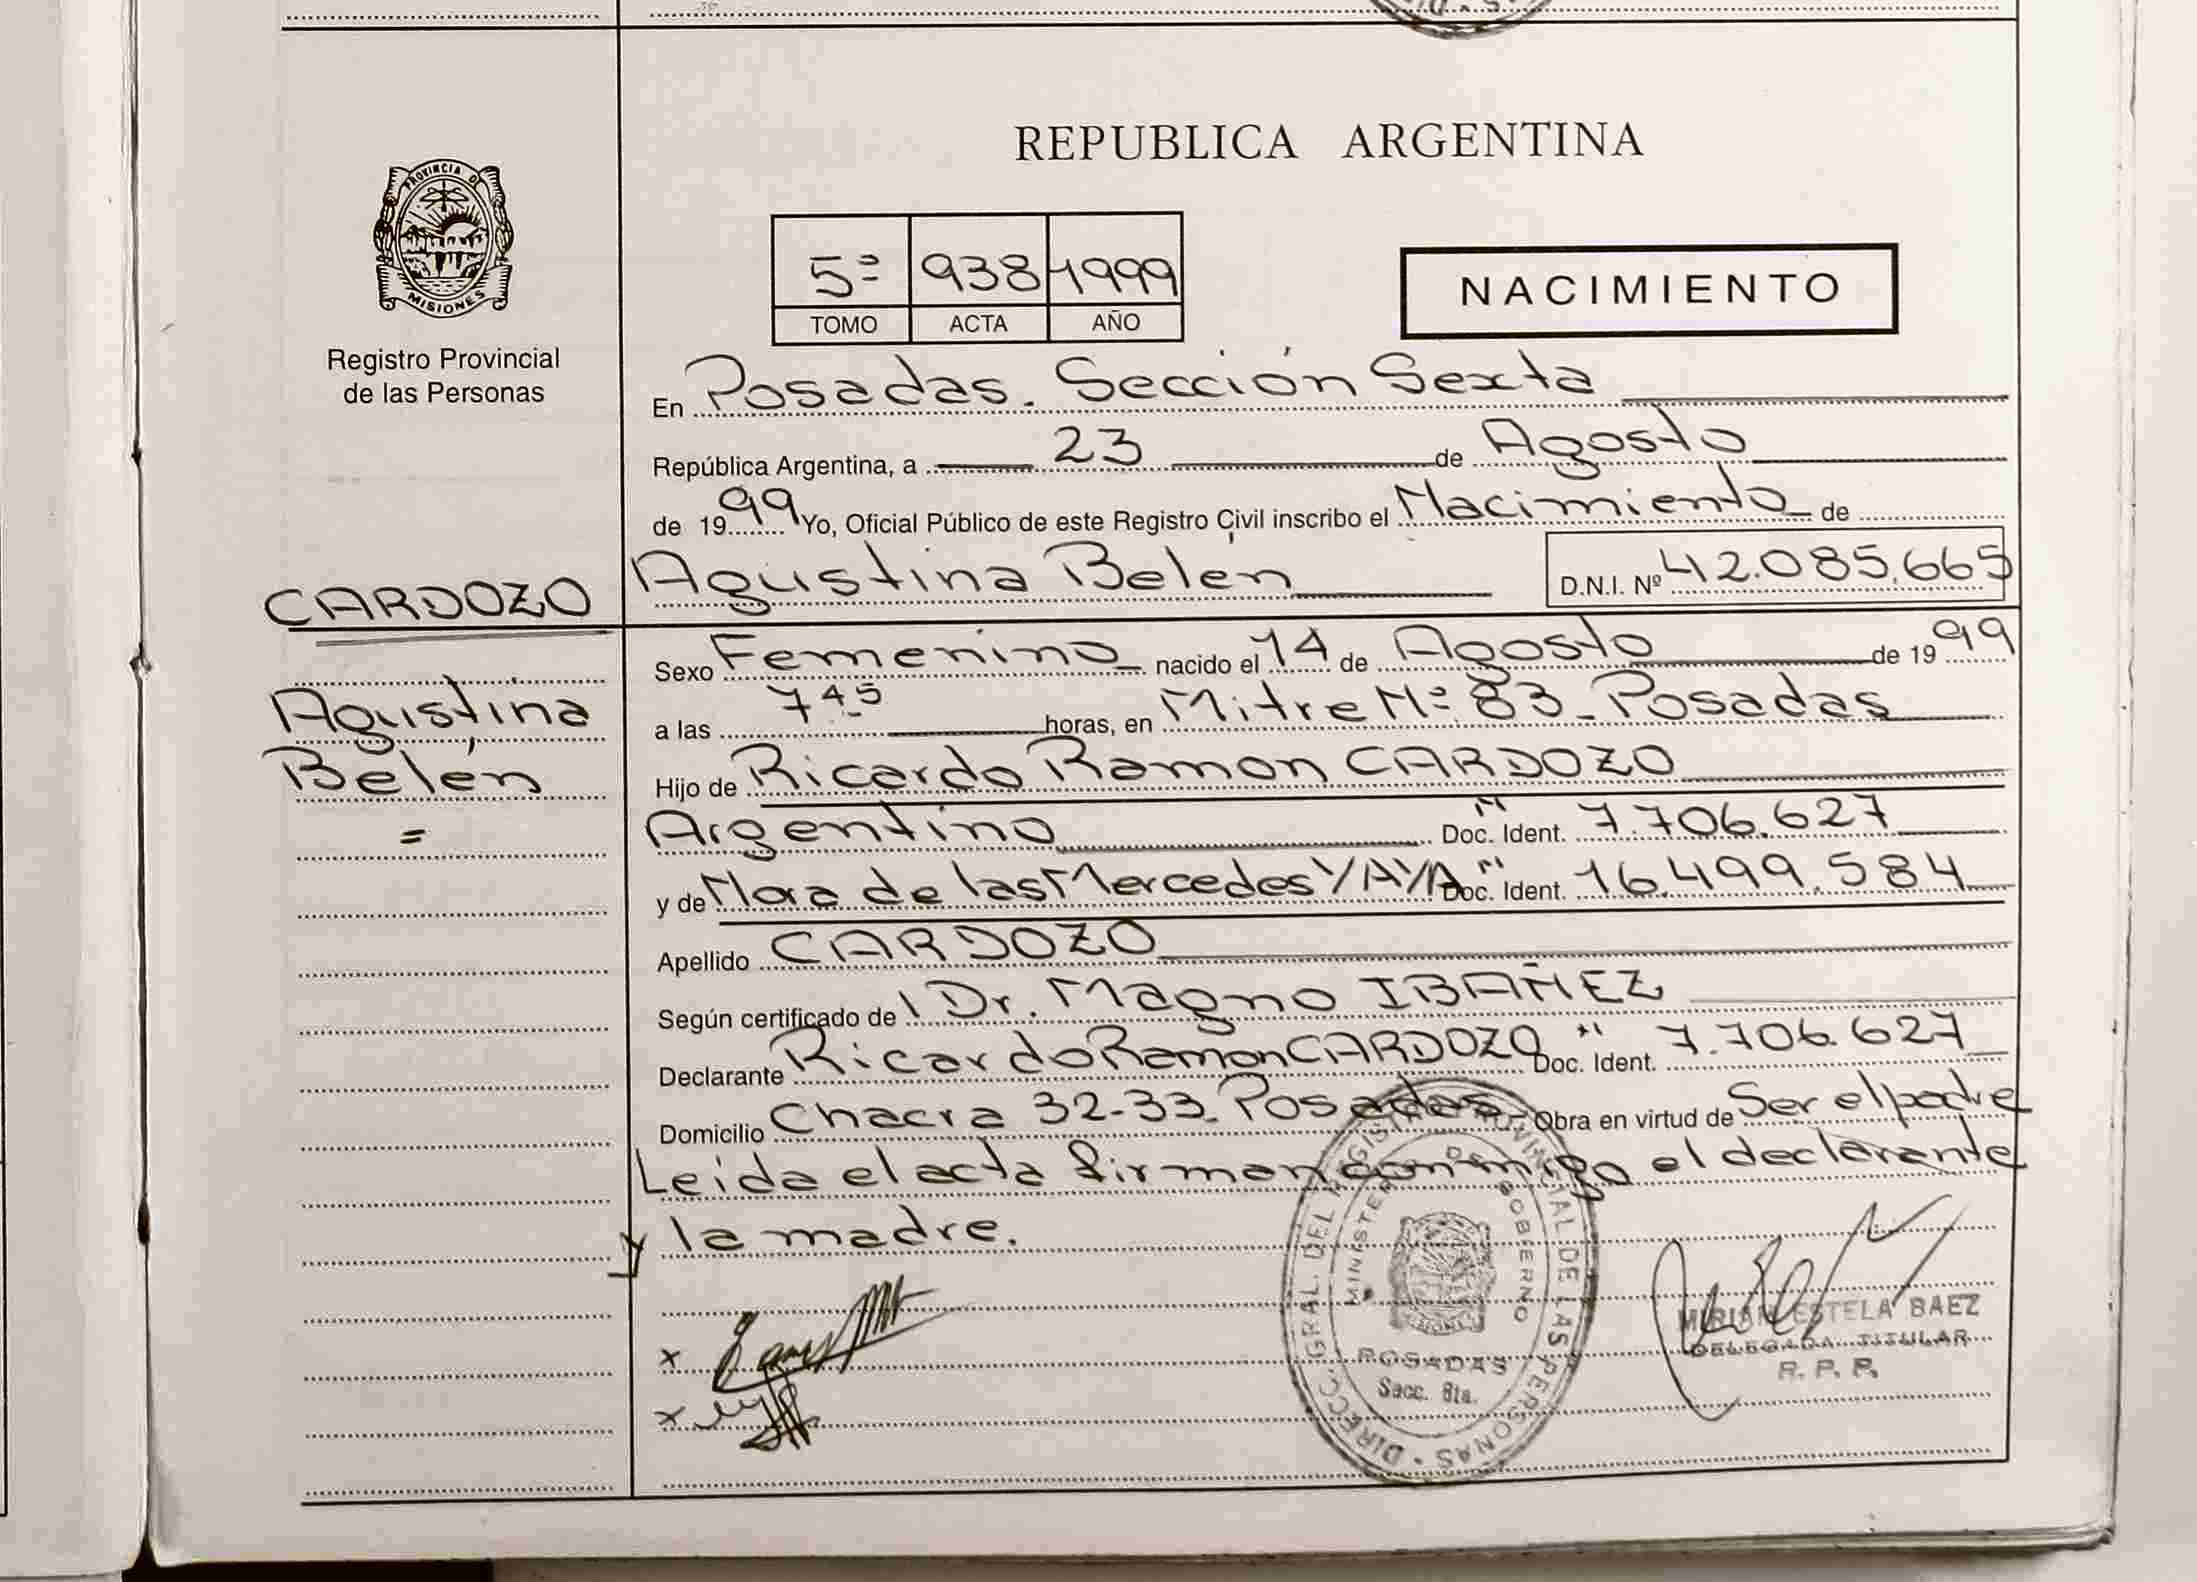 REPUBLICA ARGENTINA
PROVINCIA DE
MISIONES
Registro Provincial
de las Personas
5º 938 1999
TOMO ACTA AÑO
NACIMIENTO
En Posadas. Sección Sexta
República Argentina, a 23 de Agosto
de 1999 Yo, Oficial Público de este Registro Civil inscribo el Nacimiento de
CARDOZO Agustina Belén D.N.I. Nº 42.085.665
Sexo Femenino nacido el 14 de Agosto de 1999
Agustina
a las 7 45 horas, en Mitre Nº 83 - Posadas
Belén
Hijo de Ricardo Ramon CARDOZO
=
Argentino Doc. Ident. 7.706.627
y de Nora de las Mercedes YAYA Doc. Ident. 16.499.584
Apellido CARDOZO
Según certificado de Dr. Magno IBAÑEZ
Declarante Ricardo Ramon CARDOZO Doc. Ident. 7.706.627
Domicilio Chacra 32-33. Posadas Obra en virtud de Ser el padre
Leída el acta firman conmigo el declarante
y la madre.
DIRECC. GRAL. DEL REGISTRO PROVINCIAL DE LAS PERSONAS
MINISTERIO DE GOBIERNO
POSADAS
Secc. 6ta.
MIRIAN ESTELA BAEZ
DELEGADA TITULAR
R. P. P.
x
x